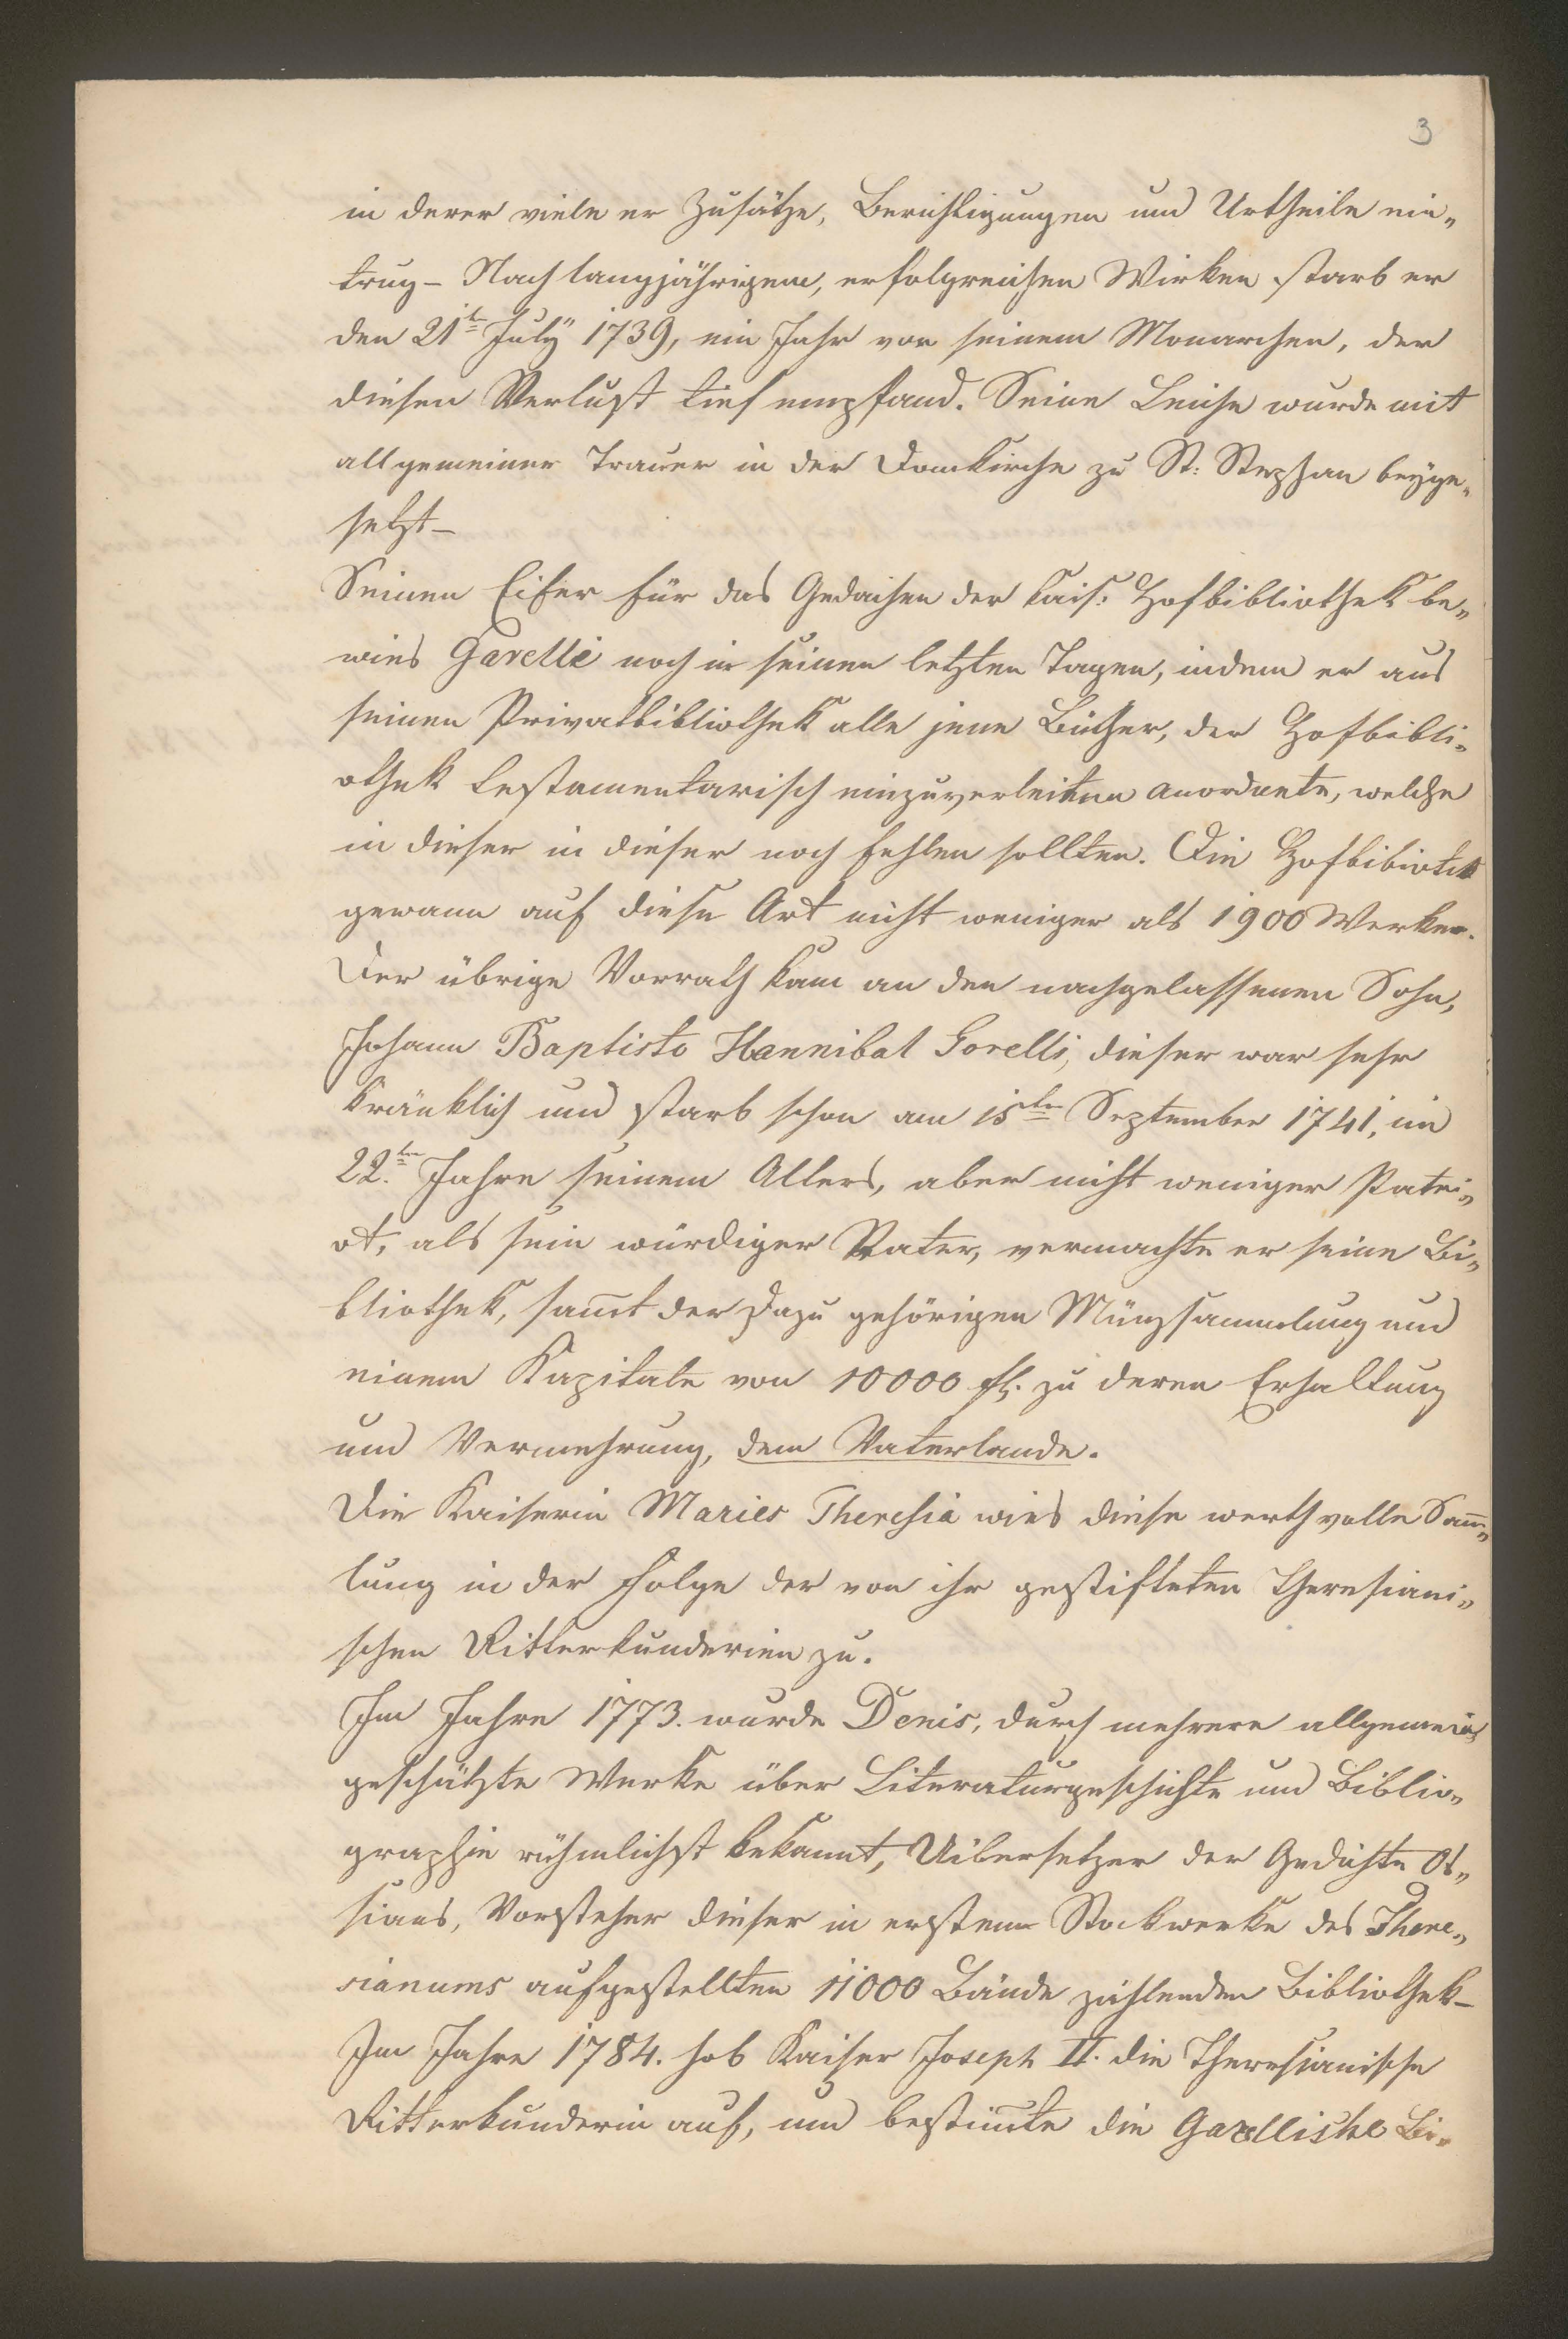 3
in derer viele er Zusätze, Berichtigungen und Urtheile ein„
trug – Nach langjährigem, erfolgreichen Wirken starb er
den 21t July 1739, ein Jahr vor seinem Monarchen, der
diesen Verlust tief empfand. Seine Leiche wurde mit
allgemeiner Trauer in der Domkirche zu St: Stephan beyge„
setzt –
Seinen Eifer für das Gedaihen der kais: Hofbibliothek be„
wies Garelli noch in seinen letzten Tagen, indem er aus
seinen Privatbibliothek alle jene Bücher, der Hofbibli„
othek testamentarisch einzuverleiten anordnete, welche
in dieser in dieser noch fehlen sollten. Die Hofbibiotek
gewann auf diese Art nicht weniger als 1900 Werken.
Der übrige Vorrath kam an den nachgelassenen Sohn,
Johann Baptisto Hannibal Gorelli, dieser war sehr
kränklich und starb schon am 15ten September 1741, im
22.ten Jahre seinem Alters, aber nicht weniger Patri„
ot, als sein würdiger Vater, vermachte er seine Bi„
bliothek, samt der dazu gehörigen Münzsammlung und
einem Kapitale von 10000 fl. zu deren Erhaltung
und Vermehrung, dem Vaterlande.
Die Kaiserin Maries Theresia wies diese werthvolle Sam„
lung in der Folge der von ihr gestifteten Theresiani„
schen Ritterkunderien zu.
Im Jahre 1773. wurde Denis, durch mehrere allgemein
geschätzte Werke über Literaturgeschichte und Biblio„
graphie rühmlichst bekannt, Uibersetzer der Gedichte Os„
sians, Vorsteher dieser in erstem Stockwerke des There„
sianums aufgestellten 11000 Bände zählenden Bibliothek –
Im Jahre 1784. hob Kaiser Joseph II. die Theresianische
Ritterkunderie auf, und bestimte die Garellische Bi„